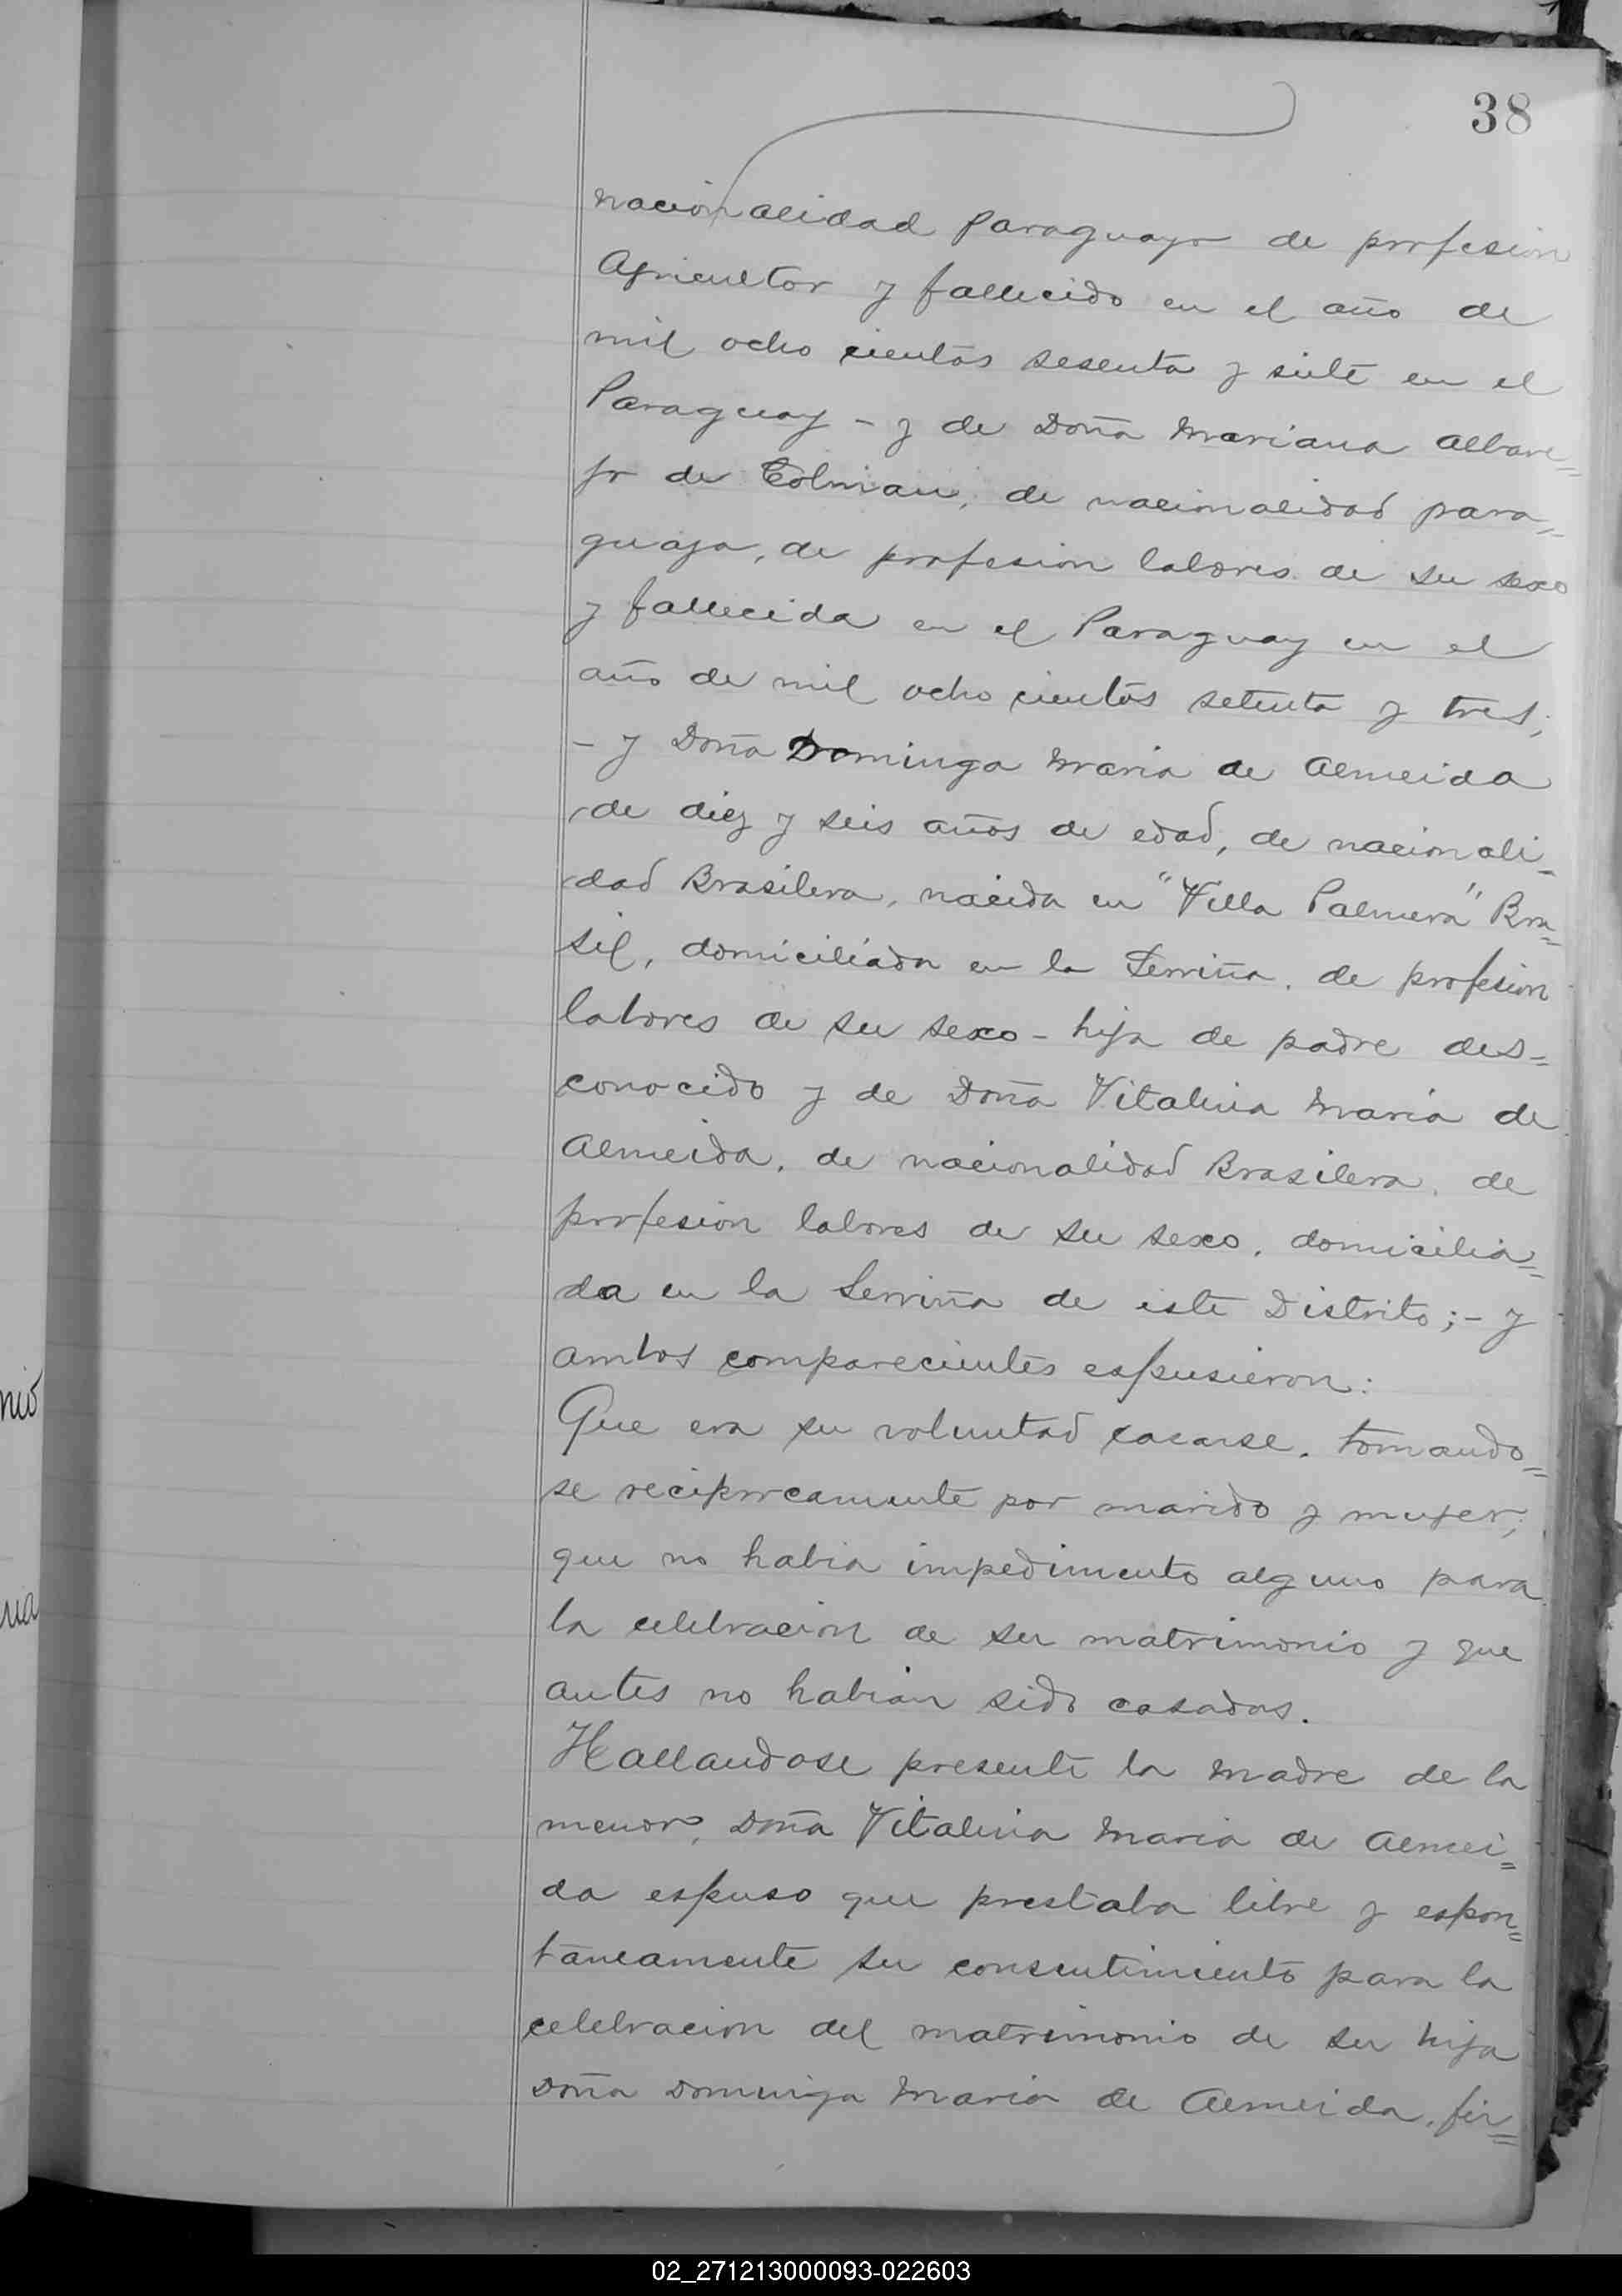 38
nacionalidad Paraguayo de profesion
Agricultor y fallecido en el año de
mil ocho cientos sesenta y siete en el
Paraguay - y de Doña Mariana Albare=
de Colman, de nacionalidad para=
guaya, de profesion labores de su sexo
y fallecida en el Paraguay en el
año de mil ocho cientos setenta y tres;
- y Doña Dominga Maria de Almeida
de diez y seis años de edad, de nacionali=
dad Brasilera, nacida en "Villa Palmera" Bra=
sil, domiciliada en la Serriña, de profesion
labores de su sexo - hija de padre des=
conocido y de Doña Vitalina Maria de
Almeida, de nacionalidad Brasilera, de
profesion labores de su sexo, domicilia=
da en la Serriña de este Distrito; - y
ambos comparecientes espusieron:
Que era su voluntad casarse, tomando=
se reciprocamente por marido y mujer;
que no habia impedimento alguno para
la celebracion de su matrimonio y que
antes no habian sido casados.
Hallandose presente la madre de la
menor, Doña Vitalina Maria de Almei=
da espuso que prestaba libre y espon=
taneamente su consentimiento para la
celebracion del matrimonio de su hija
Doña Dominga Maria de Almeida, fir=
nio
na
02_271213000093-022603